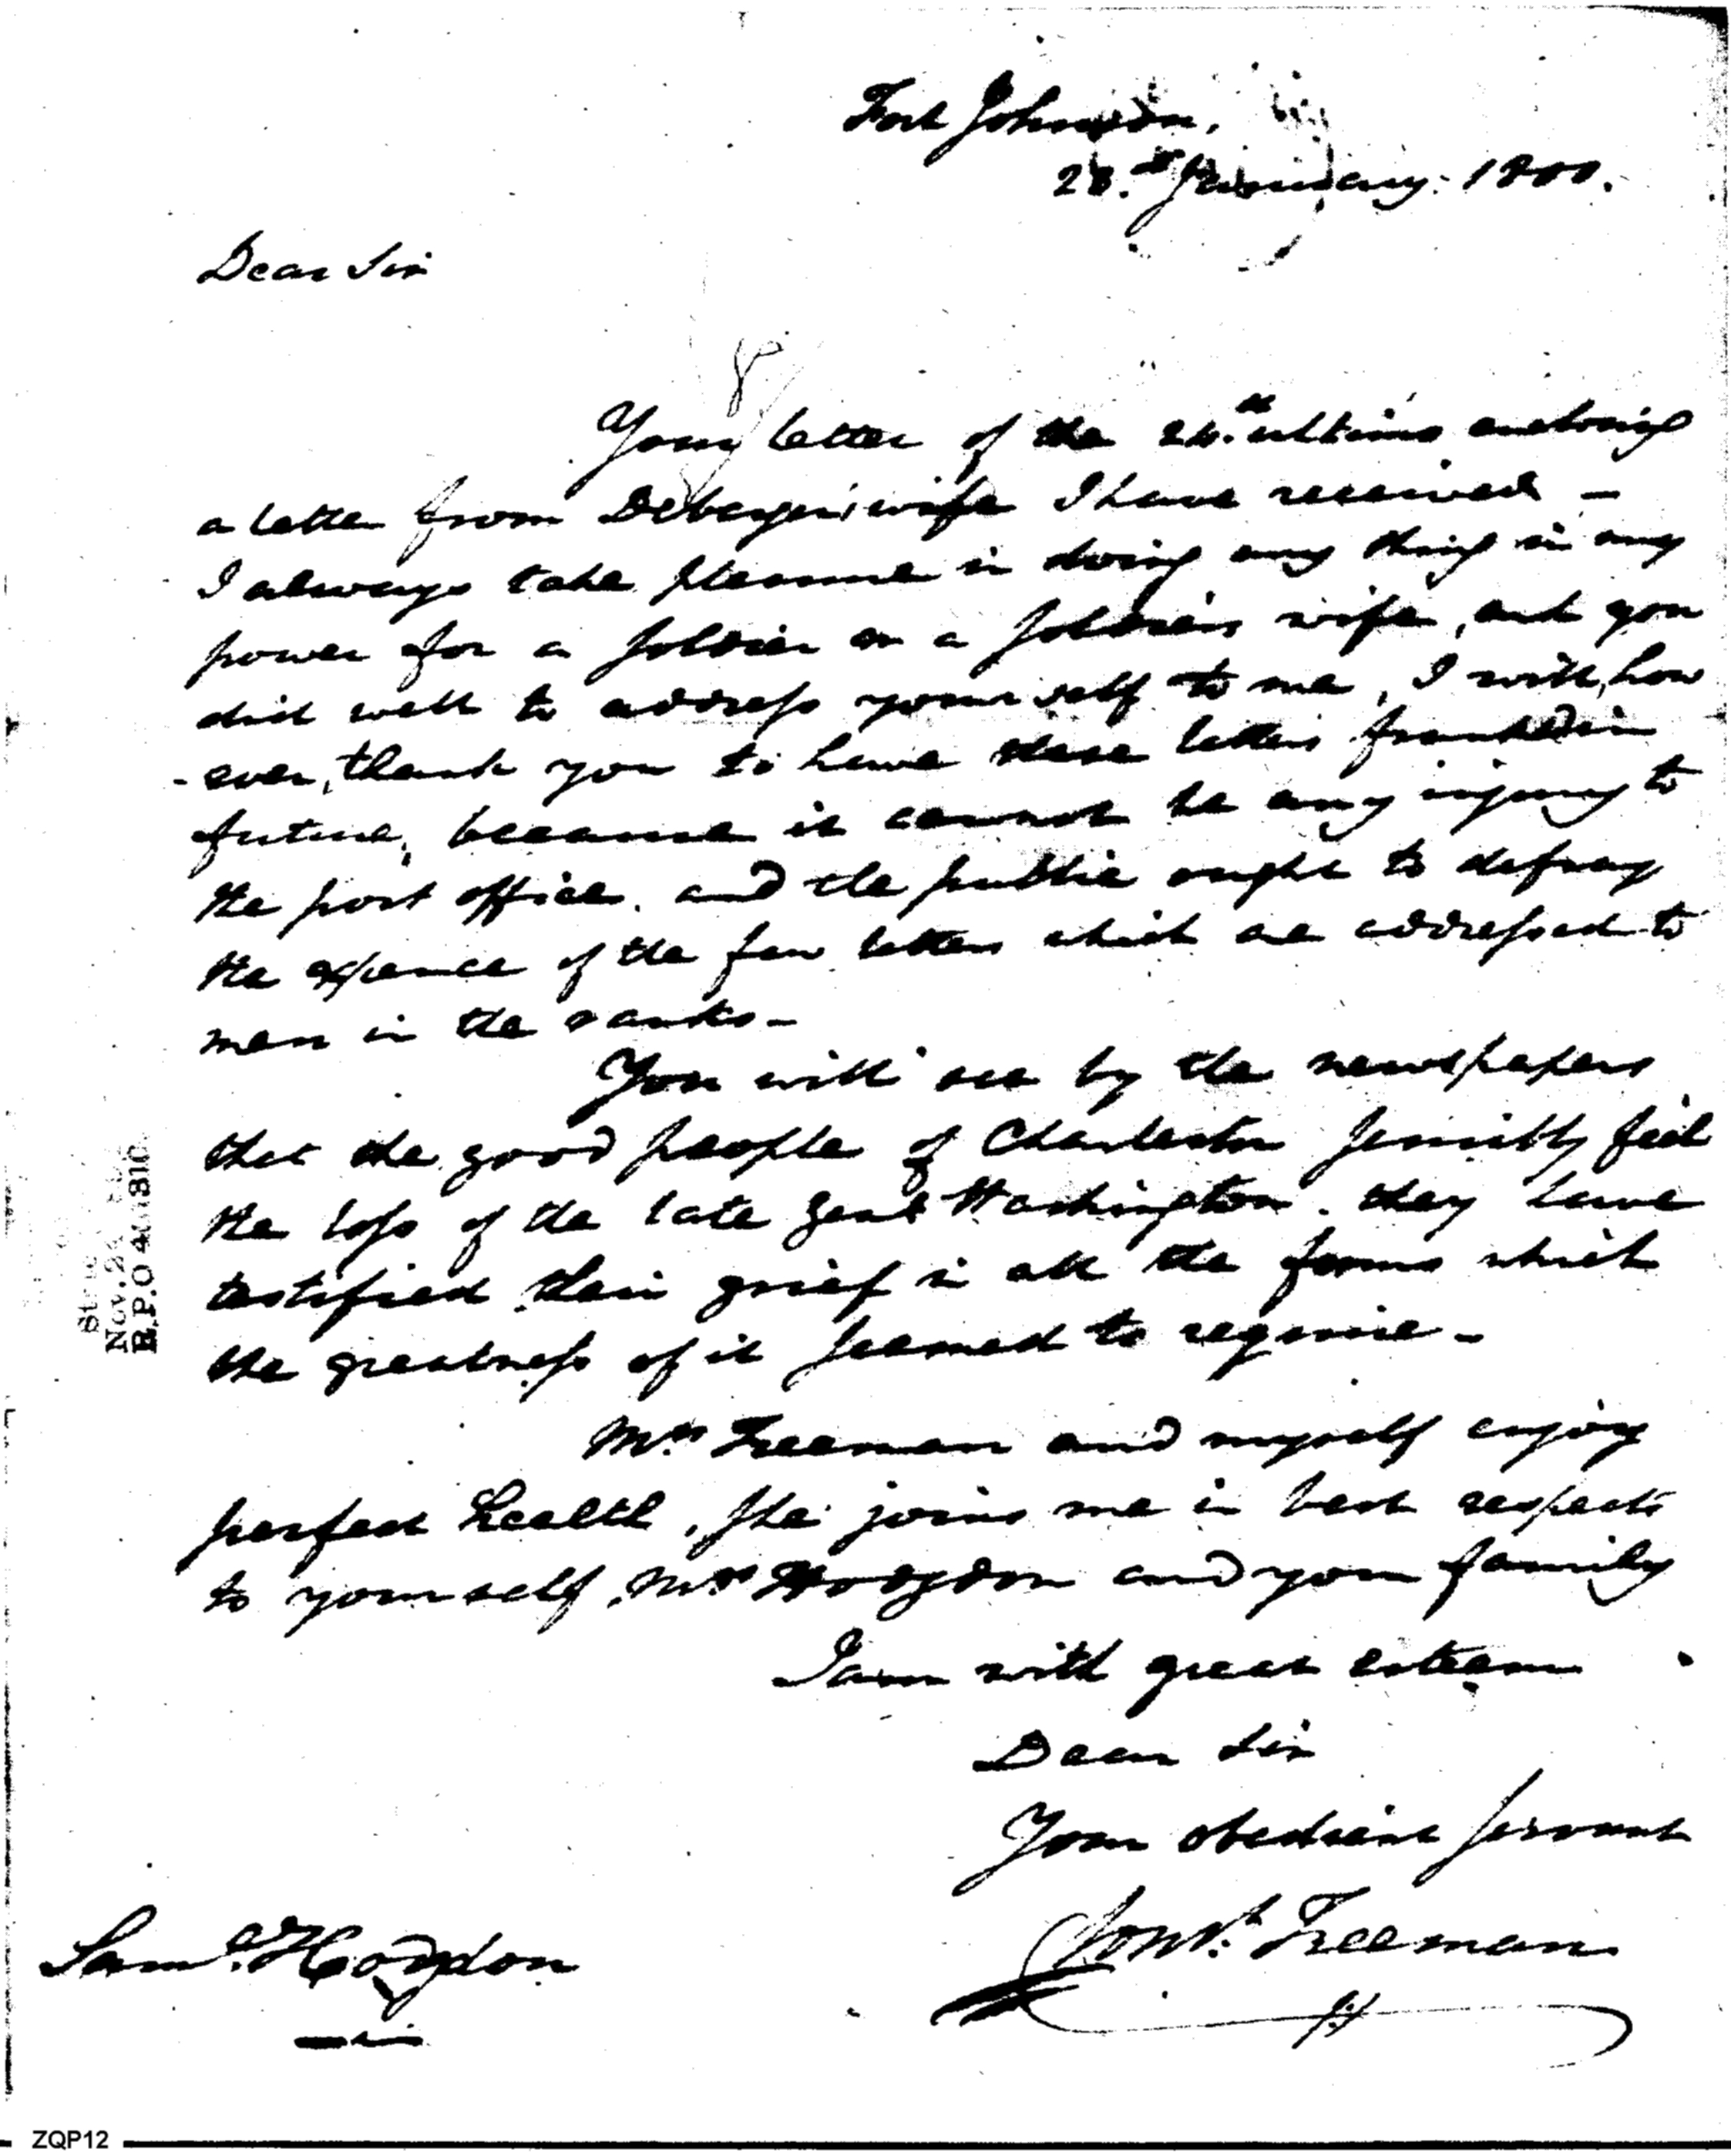 Fort Johnson,
28th January 1800.
Dear Sir
Your letter of the ultimo enclosing
a letter from wife I have received —
I always take pleasure in doing any thing in my
power for a soldier or a soldiers wife, and you
did well to address yourself to me, I will, how
- ever, thank you to have these letters franked in
future, because it cannot be any injury to
the post office. and the public ought to defray
the expence of the few letters which are addressed to
men in the ranks —
You will see by the newspapers
that the good people of Charleston sensibly feel
the loss of the late Genl Washington. they have
testified their grief in all the forms which
the greatness of it seemed to require —
Mrs Freeman and myself enjoy
perfect health, she joins me in best respects
to yourself Mrs Hodgdon and your family
I am with great esteem
Dear Sir
Your obedient servant
Cont. Freeman
Saml. Hodgdon
Nov.
R.P.O 41310
ZQP12